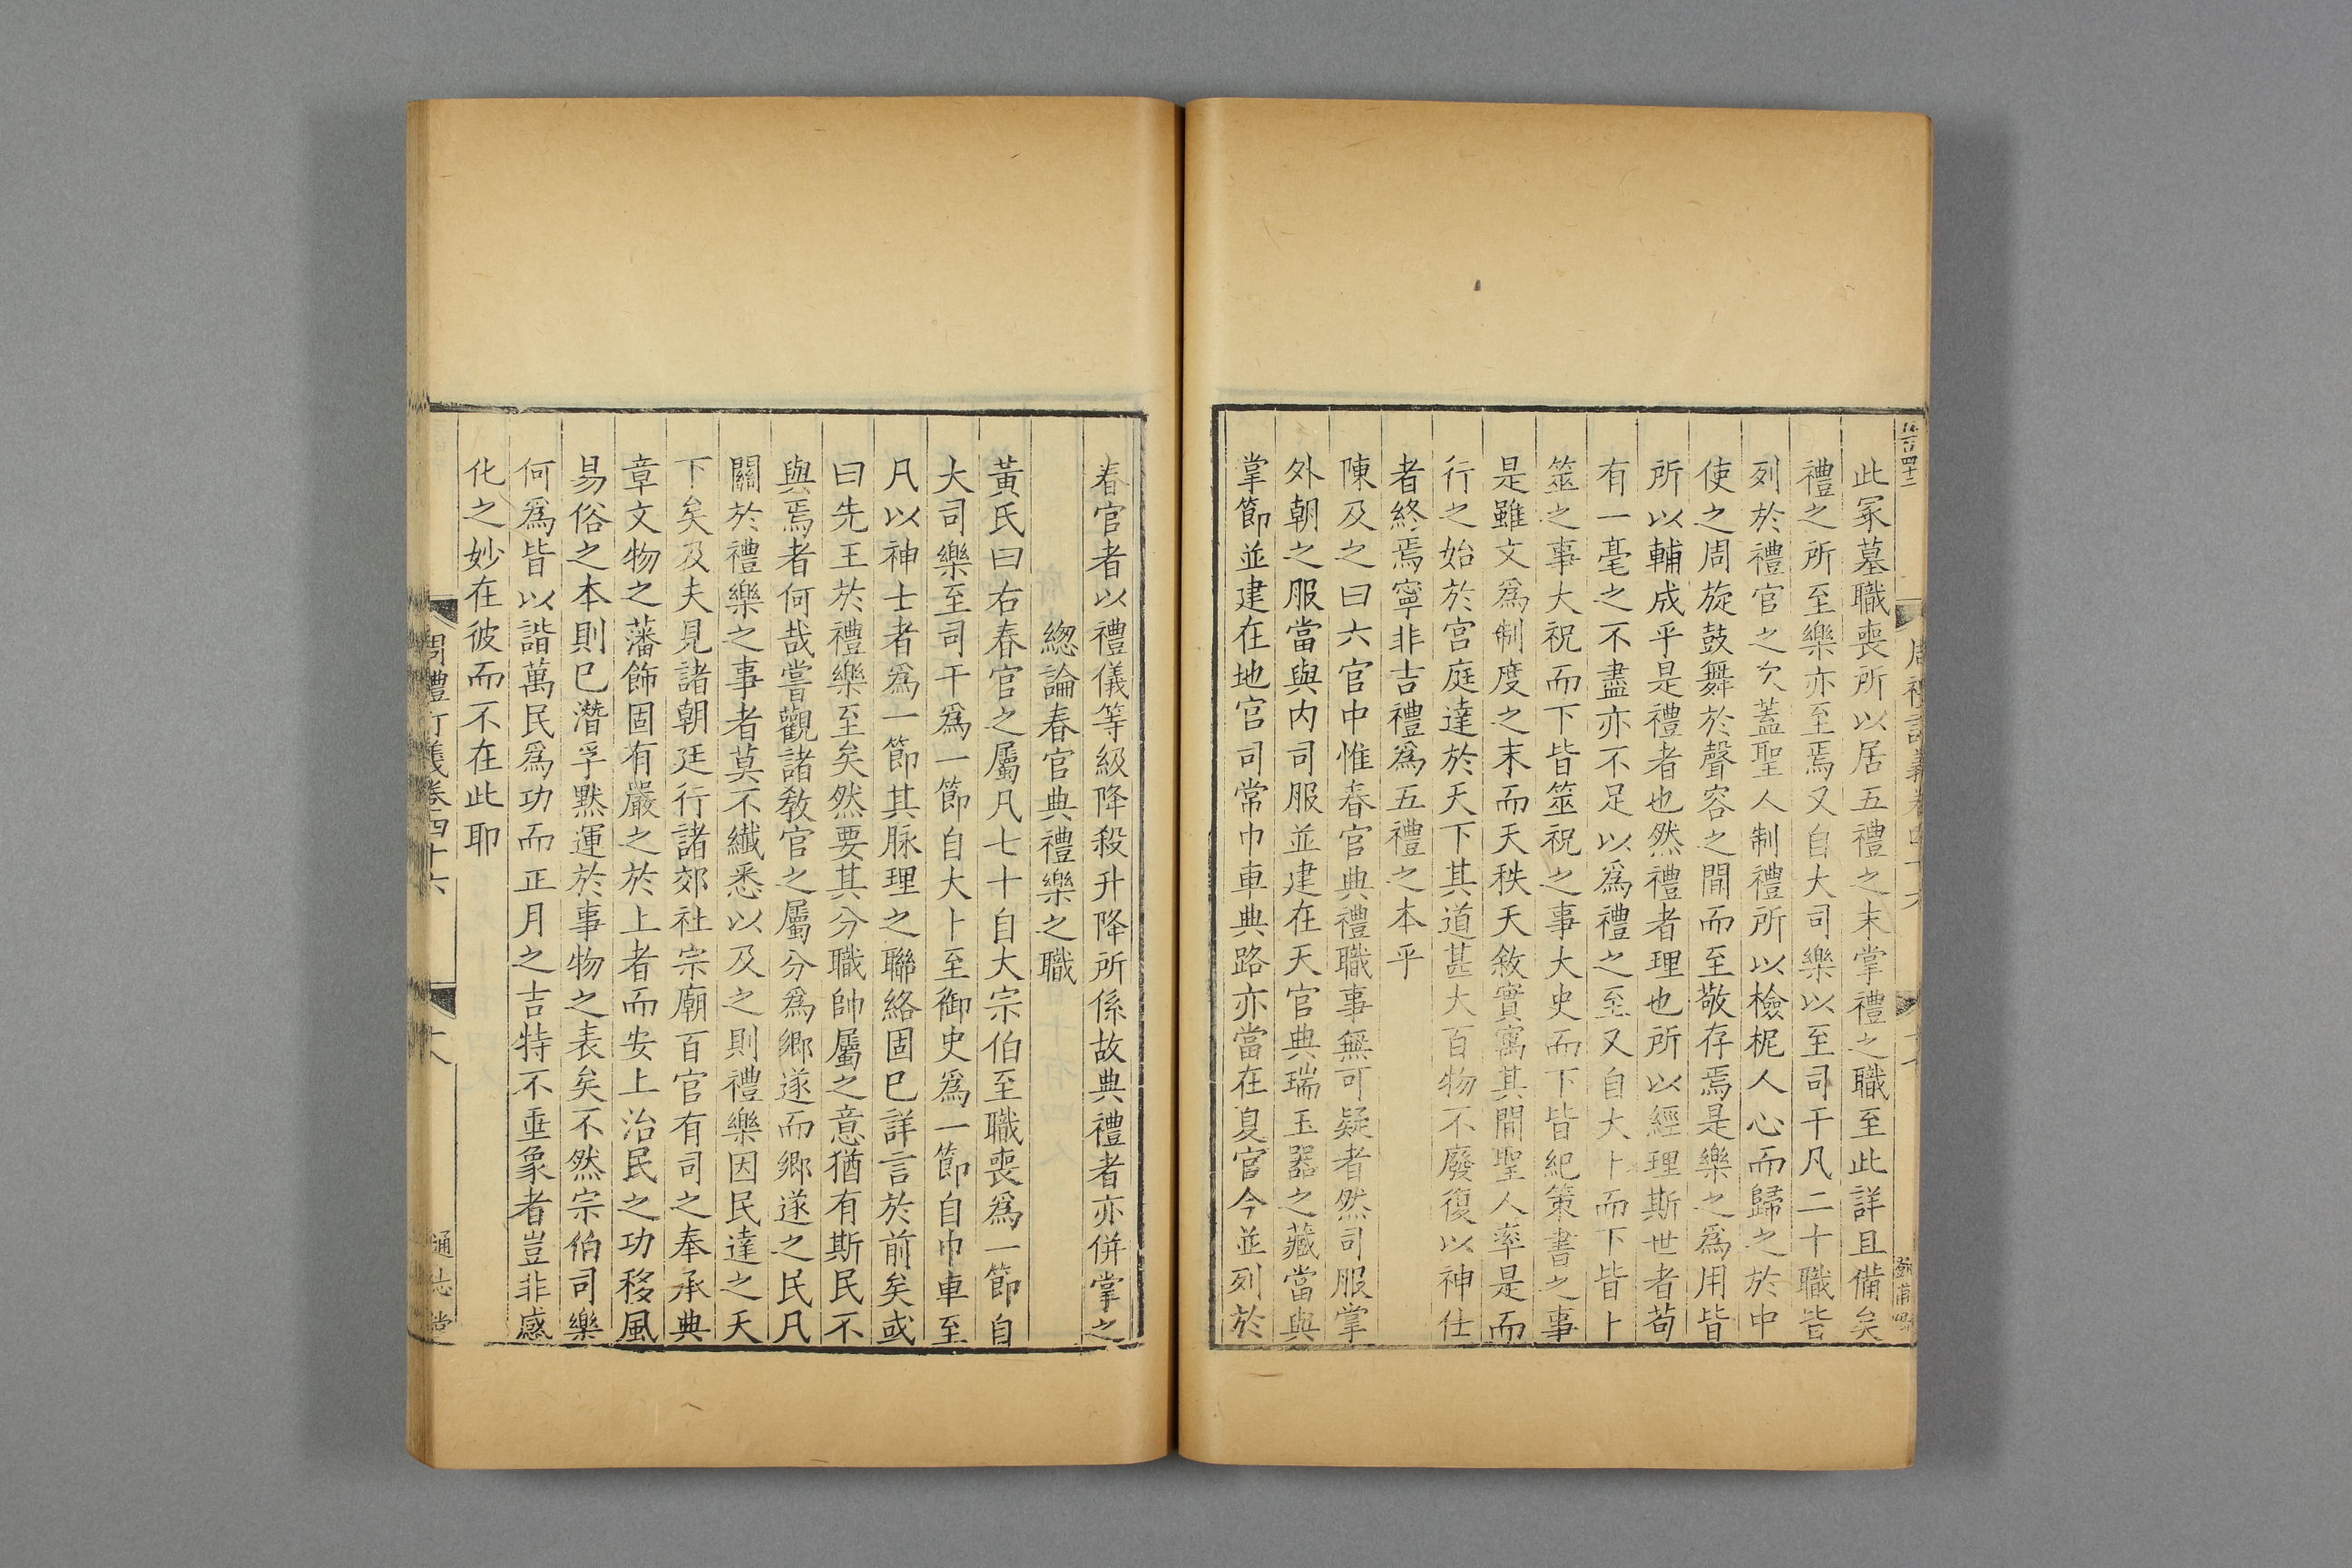 此冢墓職喪所以居五禮之末掌禮之職至此詳且備矣
禮之所至樂亦至焉又自大司樂以至司干凡二十職皆
列於禮官之次蓋聖人制禮所以檢柅人心而歸之於中
使之周旋鼓舞於聲容之間而至敬存焉是樂之爲用皆
所以輔成乎是禮者也然禮者理也所以經理斯世者苟
有一毫之不盡亦不足以爲禮之至又自大卜而下皆卜
筮之事大祝而下皆筮祝之事大史而下皆紀策書之事
是雖文爲制度之末而天秩天敘實寓其間聖人率是而
行之始於宮庭達於天下其道甚大百物不廢復以神仕
者終焉寧非吉禮爲五禮之本乎
陳及之曰六官中惟春官典禮職事無可疑者然司服掌
外朝之服當與内司服並建在天官典瑞玉器之藏當與
掌節並建在地官司常巾車典路亦當在夏官今並列於
春官者以禮儀等級降殺升降所係故典禮者亦併掌之
緫論春官典禮樂之職
黃氏曰右春官之屬凡七十自大宗伯至職喪爲一節自
大司樂至司干爲一節自大卜至御史爲一節自巾車至
凡以神士者爲一節其脉理之聯絡固巳詳言於前矣或
曰先王於禮樂至矣然要其分職帥屬之意猶有斯民不
與焉者何哉嘗觀諸敎官之屬分爲鄉遂而鄉遂之民凡
關於禮樂之事者莫不纎悉以及之則禮樂因民達之天
下矣及夫見諸朝廷行諸郊社宗廟百官有司之奉承典
章文物之藩飾固有嚴之於上者而安上治民之功移風
易俗之本則巳潛孚黙運於事物之表矣不然宗伯司樂
何爲皆以諧萬民爲功而正月之吉特不垂象者豈非感
化之妙在彼而不在此耶
周禮訂義卷四十六
十八
通志堂